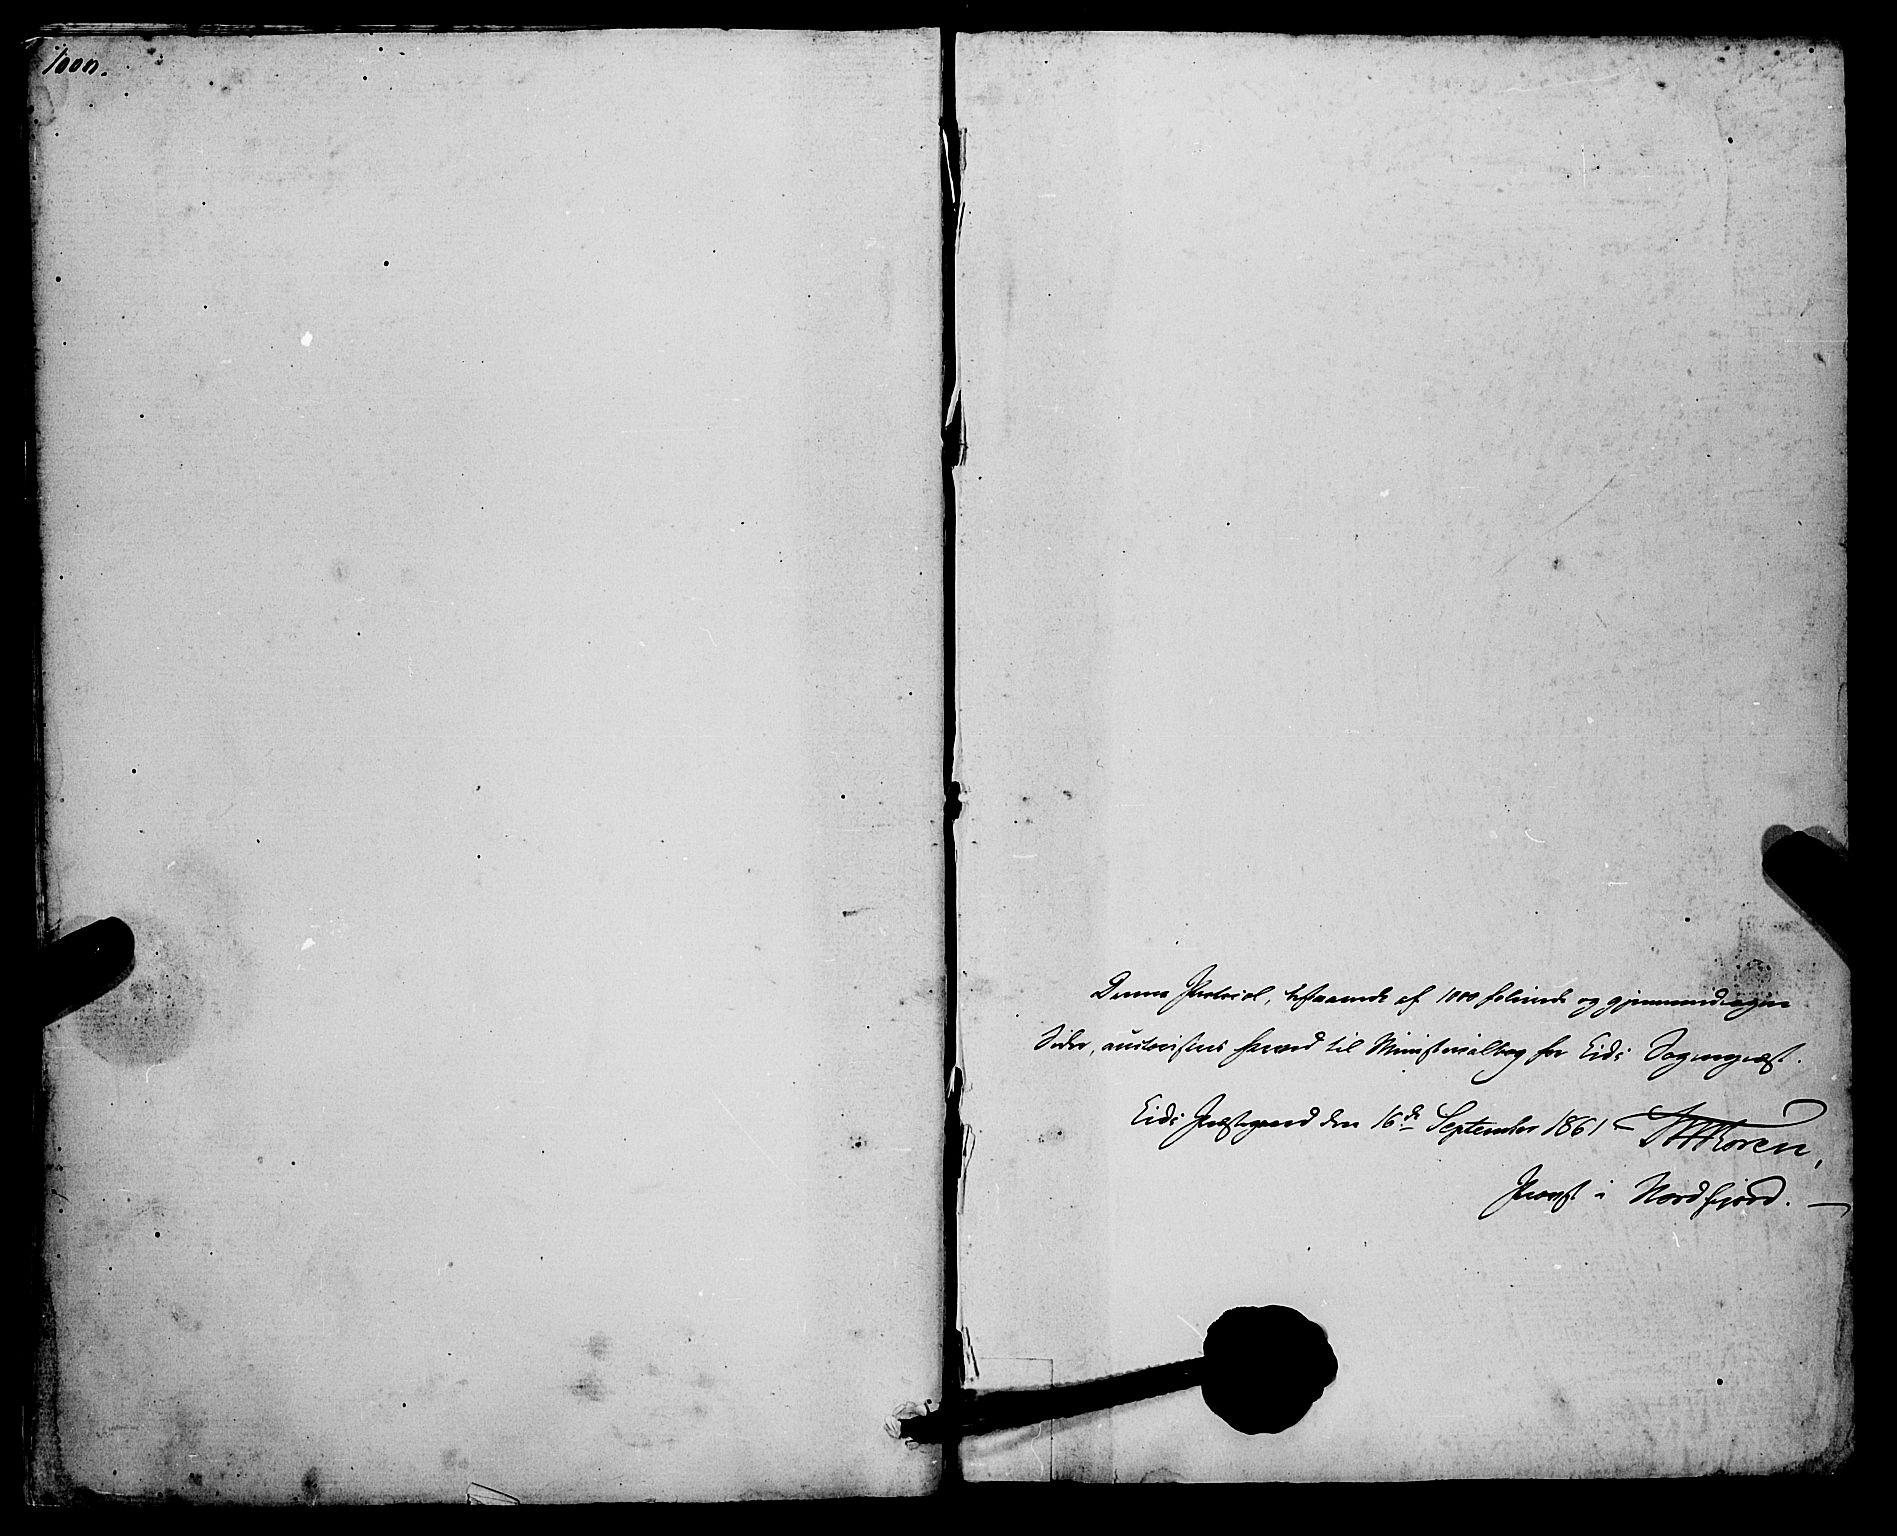 1000.
Denne Protocol, bestaaende af 1000 folierede og gjennemdragne
Sider, autoriseres herved til Ministerialbog for Eids Sogneprest.
Eids Præstegaard den 16de September 1861
Koren,
Provst i Nordfjord.